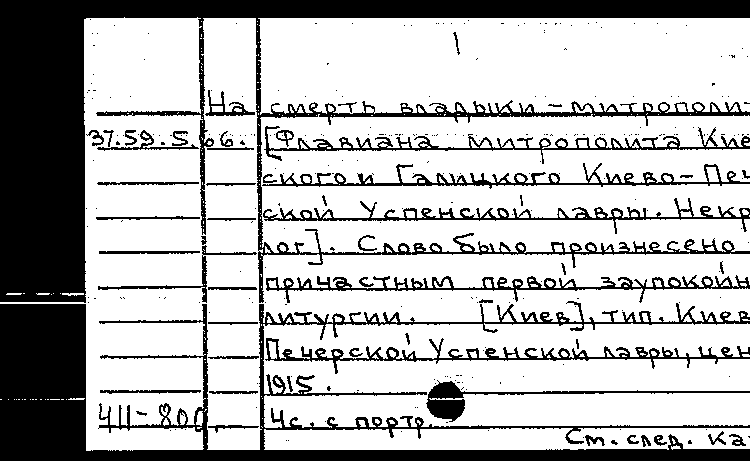 На смерть владыки-митрополит
37.59.5.66. [Флавиана митрополита Кие
ского и Галицкого Киево-Печ
ской Успенской лавры. Некр
лог]. Слово было произнесено
причастным первой заупокойн
литургии. [Киев], тип. Киев
Печерской Успенской лавры, цен
1915.
411-800. 4с. с портр.
См. след. ка